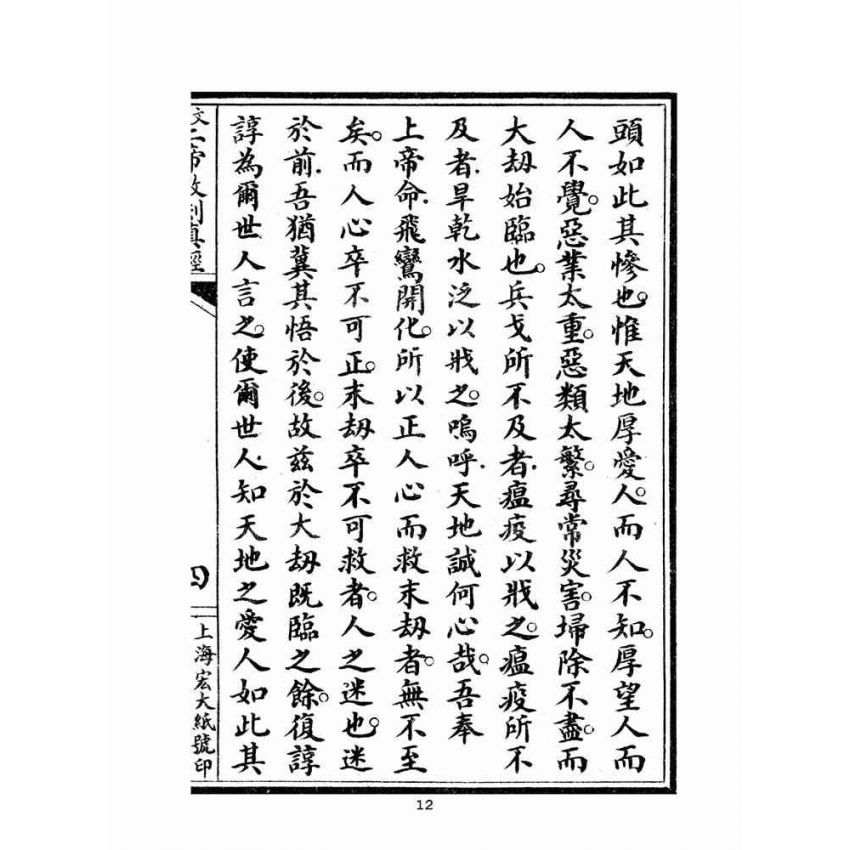 頭如此其慘也。惟天地厚愛人。而人不知。厚望人而
人不覺。惡業太重。惡類太繁。尋常災害。埽除不盡。而
大刼始臨也。兵戈所不及者.瘟疫以戕之。瘟疫所不
及者.旱乾水泛以戕之。嗚呼.天地誠何心哉。吾奉
上帝命.飛鸞開化。所以正人心而救末刼者。無不至
矣。而人心卒不可正。末刼卒不可救者。人之迷也。迷
於前.吾猶冀其悟於後。故茲於大刼既臨之餘。復諄
諄為爾世人言之。使爾世人.知天地之愛人如此其
帝救刦真經
四
上海宏大紙號印
12